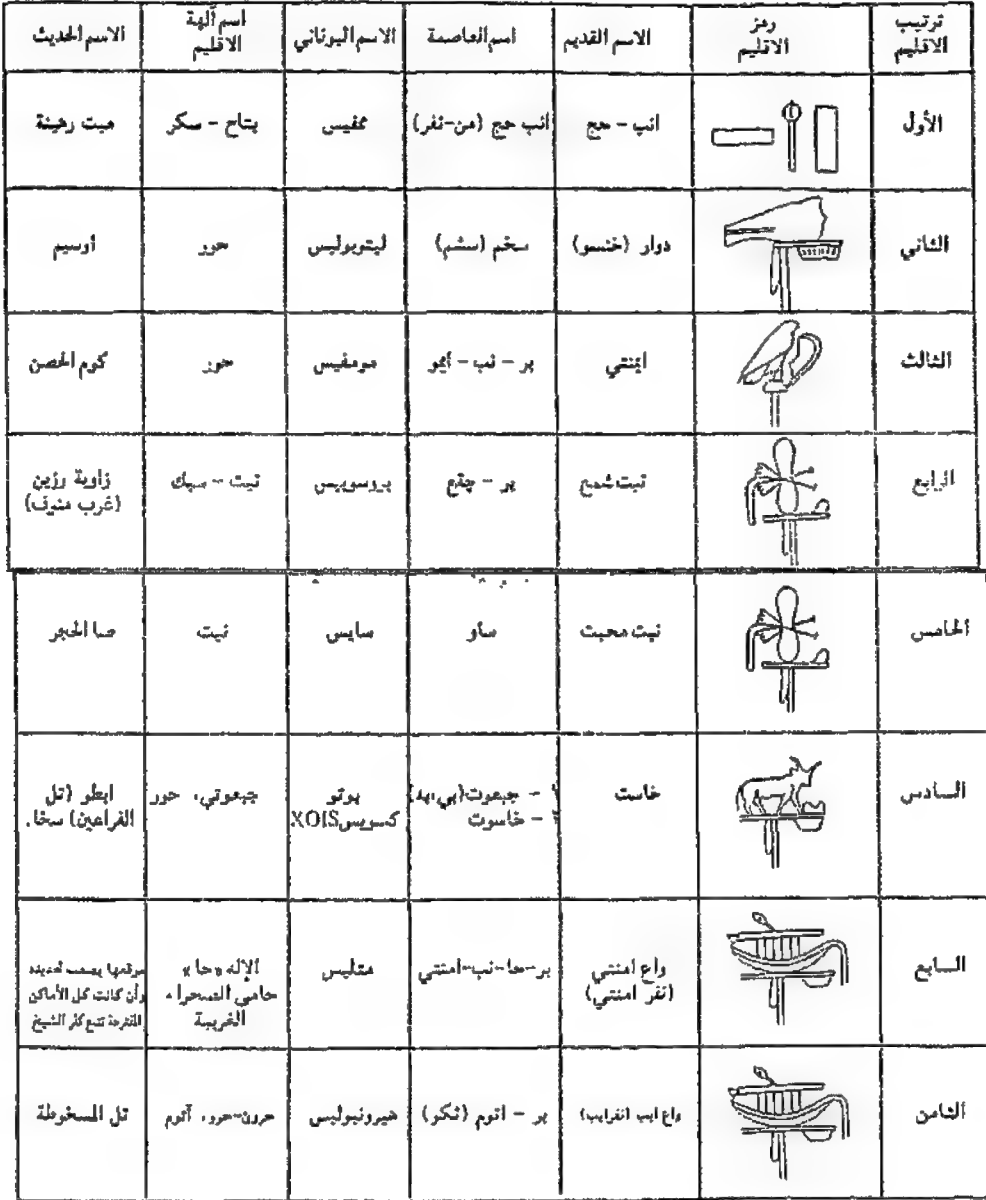 ترتيب الاقليم | رمز الاقليم | الاسم القديم | اسم العاصمة | الاسم اليوناني | اسم آلهة الاقليم | الاسم الحديث
الأول | انب - حج | انب حج (من-نفر) | ممفيس | پتاح - سكر | ميت رهينة
الثاني | دوار (خنسو) | سخم (سشم) | ليتوبوليس | حور | أوسيم
الثالث | ايمنتي | بر - نب - أيمو | مومفيس | حور | كوم الحصن
الرابع | نيت شمع | بر - چقع | بروسوبيس | نيت - سبك | زاوية رزين (غرب منوف)
الخامس | نيت محيت | ساو | سايس | نيت | صا الحجر
السادس | خاست | - جبعوت (بي، به) - خاسوت | بوتو كسويس XOIS | جبعوتي، حور | ابطو (تل الفراعين) سخا.
السابع | واع امنتي (نفر امنتي) | بر-حا-نب-امنتي | متليس | الإله «حا» حامي الصحراء الغربية | موقعها يصعب تحديده وأن كانت كل الأماكن المقترحة تتبع كفر الشيخ
الثامن | واع ايب (نفرايب) | بر - اتوم (ثكو) | هيرونبوليس | حرون-حور، آتوم | تل المسخوطة